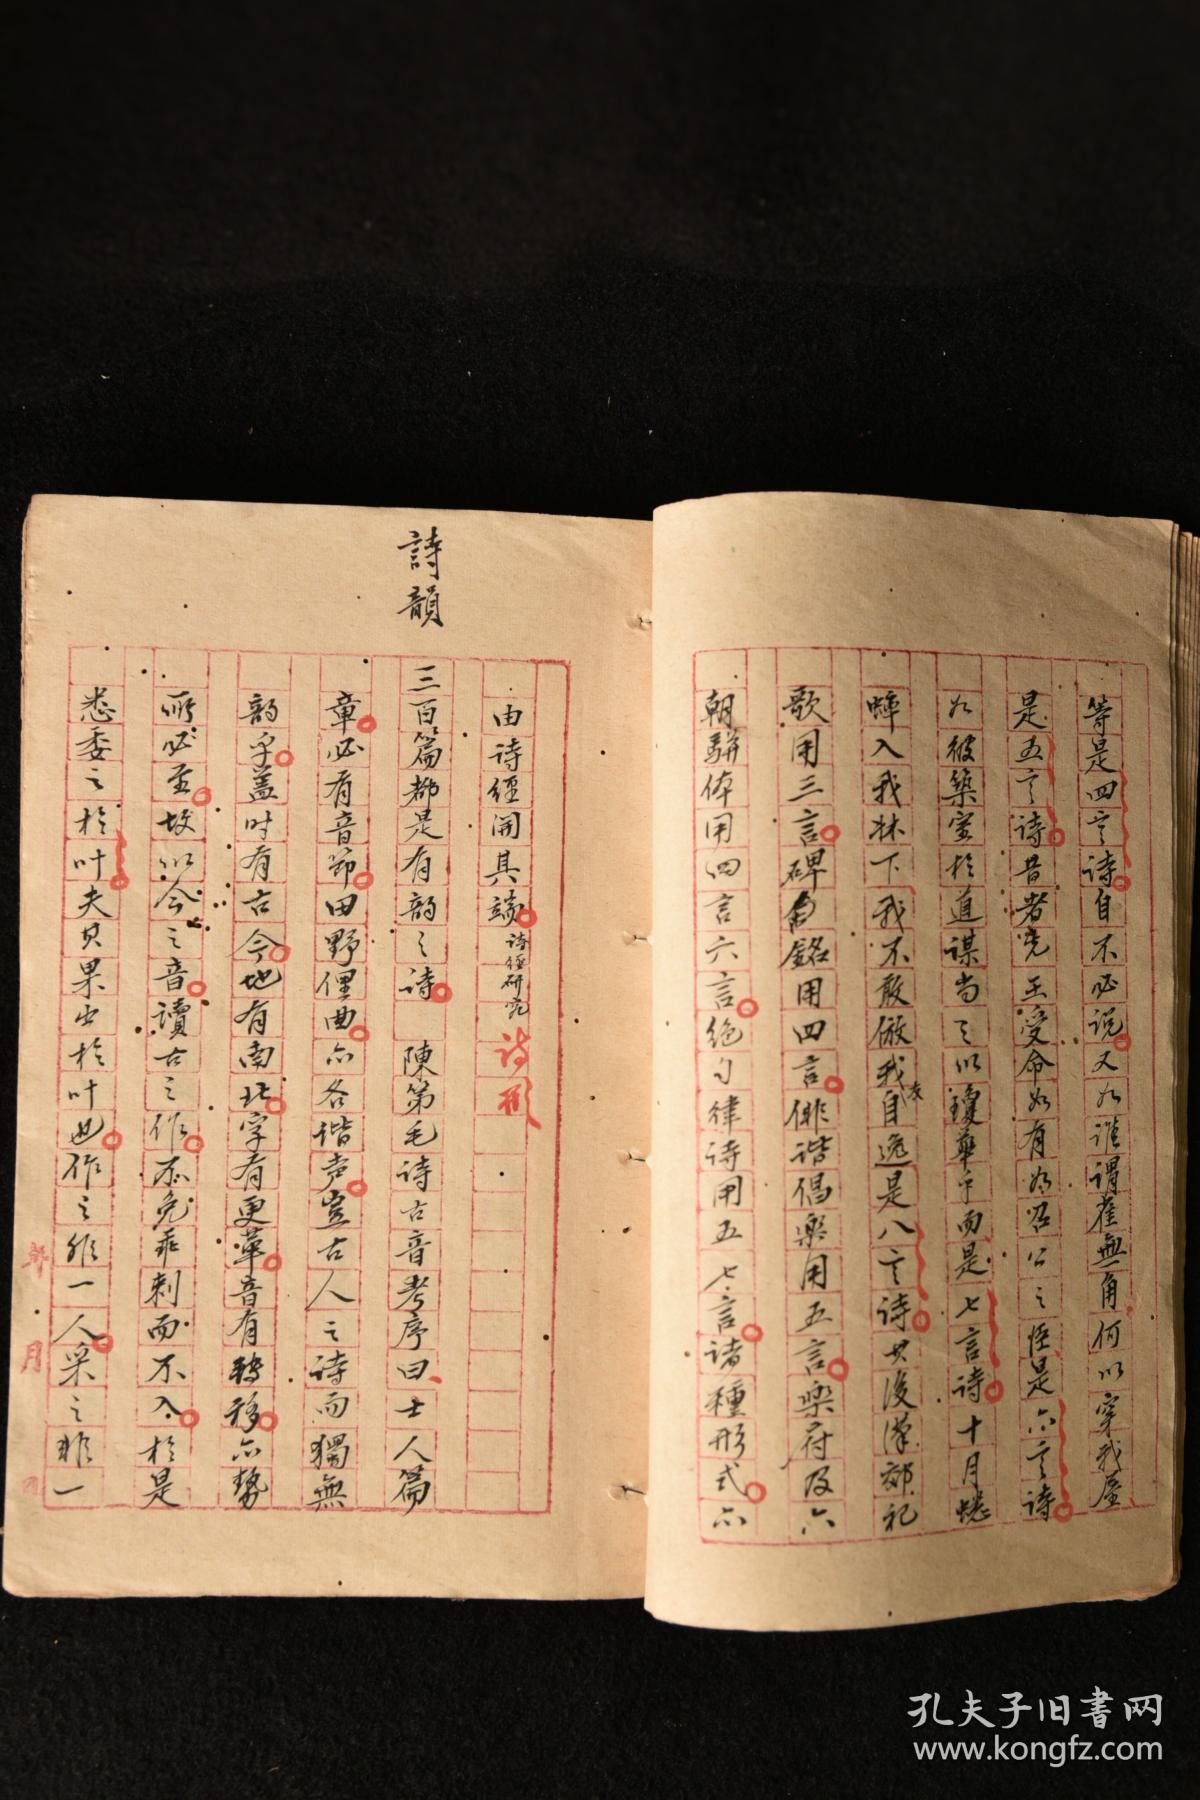 等是四言诗自不必说又如谁謂雀無角何以穿我屋
是五言诗昔者先王受命如有如召公之臣是六言诗
如彼築室於道謀尚之以瓊華乎而是七言诗十月蟋
蟀入我牀下我不敢傚我友自逸是八言诗其後漢郊祀
歌用三言碑銘用四言俳谐倡樂用五言樂府及六
朝駢体用四言六言絶句律诗用五七言诸種形式亦
由诗經開其端诗經研究诗形
詩韻
三百篇都是有韵之诗 陳第毛诗古音考序曰士人篇
章必有音節田野俚曲亦各谐声豈古人之诗而獨無
韵乎盖时有古今地有南北字有更革音有转移亦勢
所必至故以今之音讀古之作不免乖剌而不入於是
悉委之於叶夫其果出於叶也作之非一人采之非一
年 月
孔夫子旧书网
www.kongfz.com